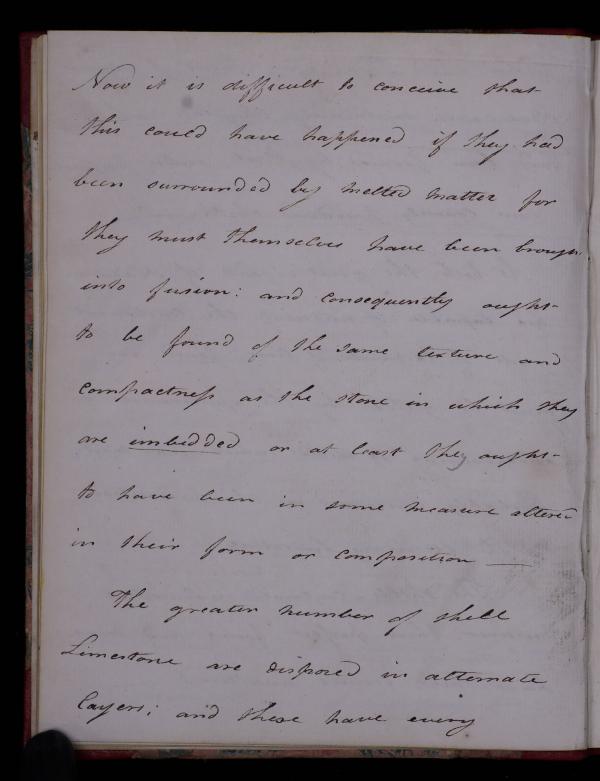 Now it is difficult to conceive that
this could have happened if they had
been surrounded by melted matter for
they must themselves have been brough
into fusion: and consequently ought
to be found of the same texture and
compactness as the stone in which they
are imbedded or at least they ought
to have been in some measure altered
in their form or composition —
The greater number of shell
Limestone are disposed in alternate
layers; and these have every